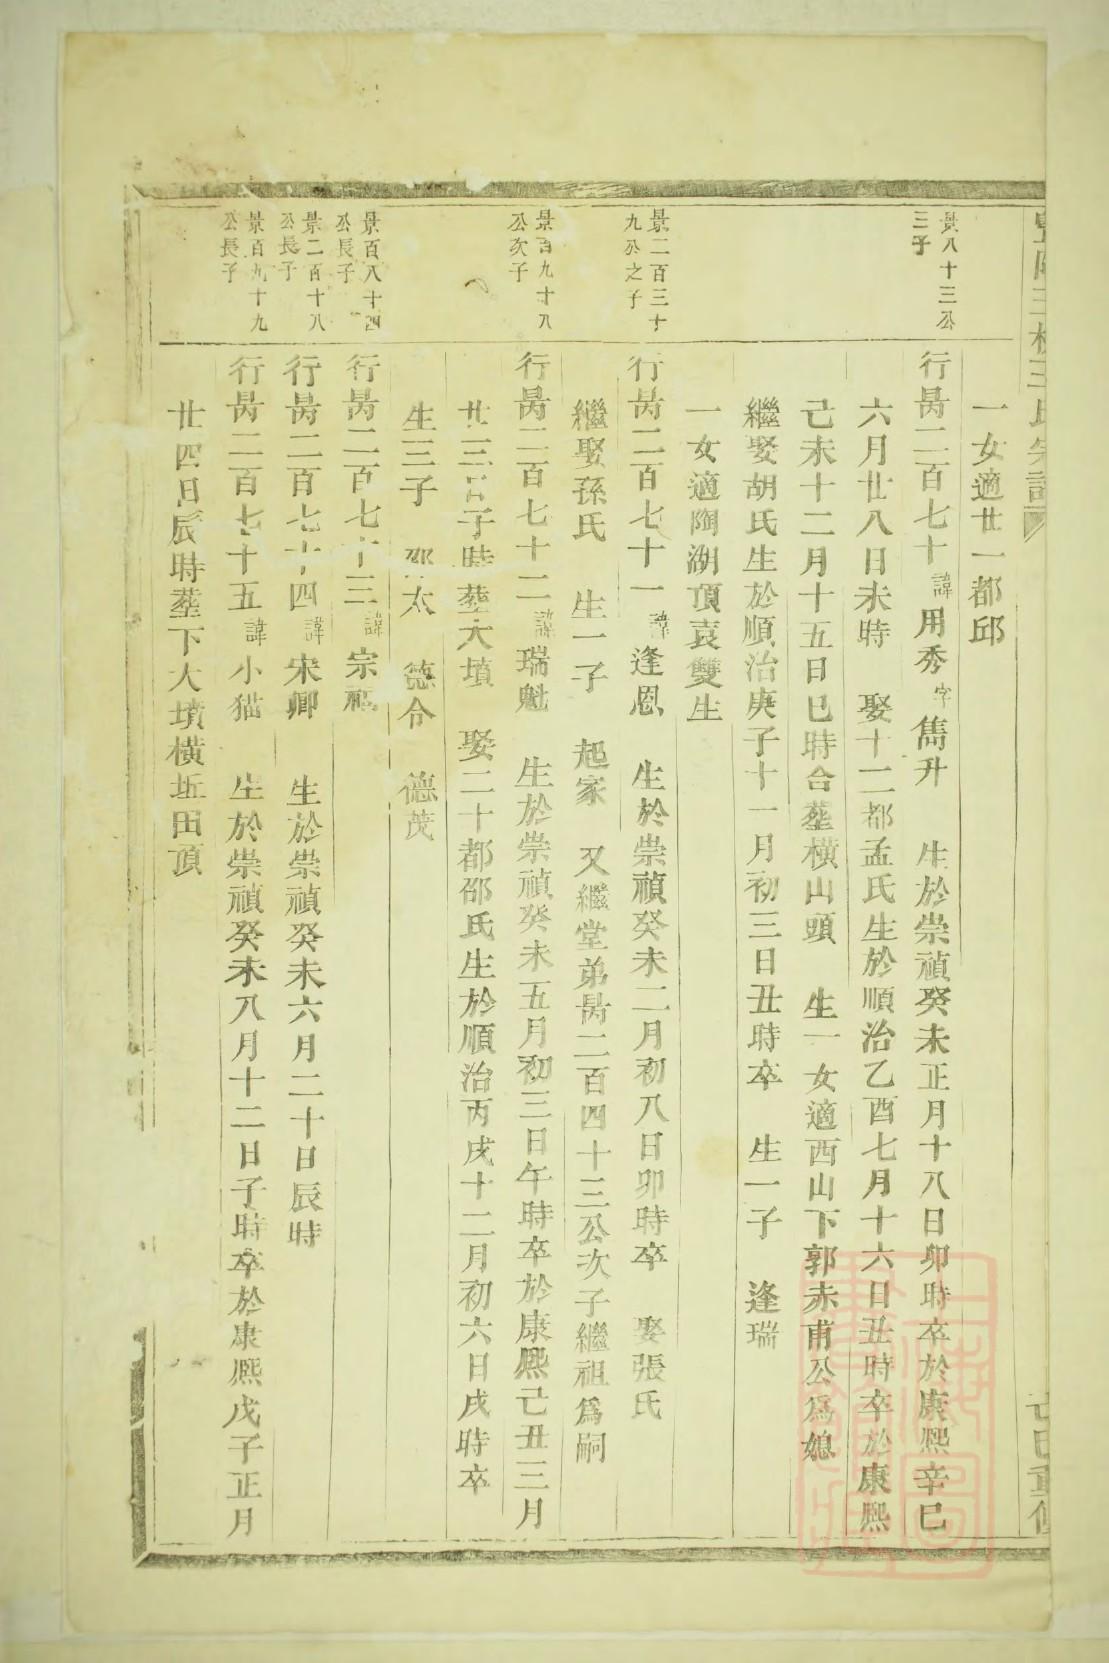 一女適廿一都邱
景八十三公三子
行昺二百七十諱用秀字雋升 生於崇禎癸未正月十八日卯時卒於康熙辛巳
六月廿八日未時 娶十二都孟氏生於順治乙酉七月十六日丑時卒於康熙
己未十二月十五日巳時合塟橫山頭 生一女適西山下郭赤甫公爲媳
繼娶胡氏生於順治庚子十一月初三日丑時卒 生一子 逢瑞
一女適陶湖頂袁雙生
景二百三十九公之子
行昺二百七十一諱逢恩 生於崇禎癸未二月初八日卯時卒 娶張氏
繼娶孫氏 生一子 起家 又繼堂弟昺二百四十三公次子繼祖爲嗣
景百九十八公次子
行昺二百七十二諱瑞魁 生於崇禎癸未五月初三日午時卒於康熙己丑三月
廿三日子時塟大墳 娶二十都邵氏生於順治丙戌十二月初六日戌時卒
生三子 邵太 德令 德茂
景百八十四公長子
行昺二百七十三諱宗福
景二百十八公長子
行昺二百七十四諱宋卿 生於崇禎癸未六月二十日辰時
景百九十九公長子
行昺二百七十五諱小猫 生於崇禎癸未八月十二日子時卒於康熙戊子正月
廿四日辰時塟下大墳橫坵田頂